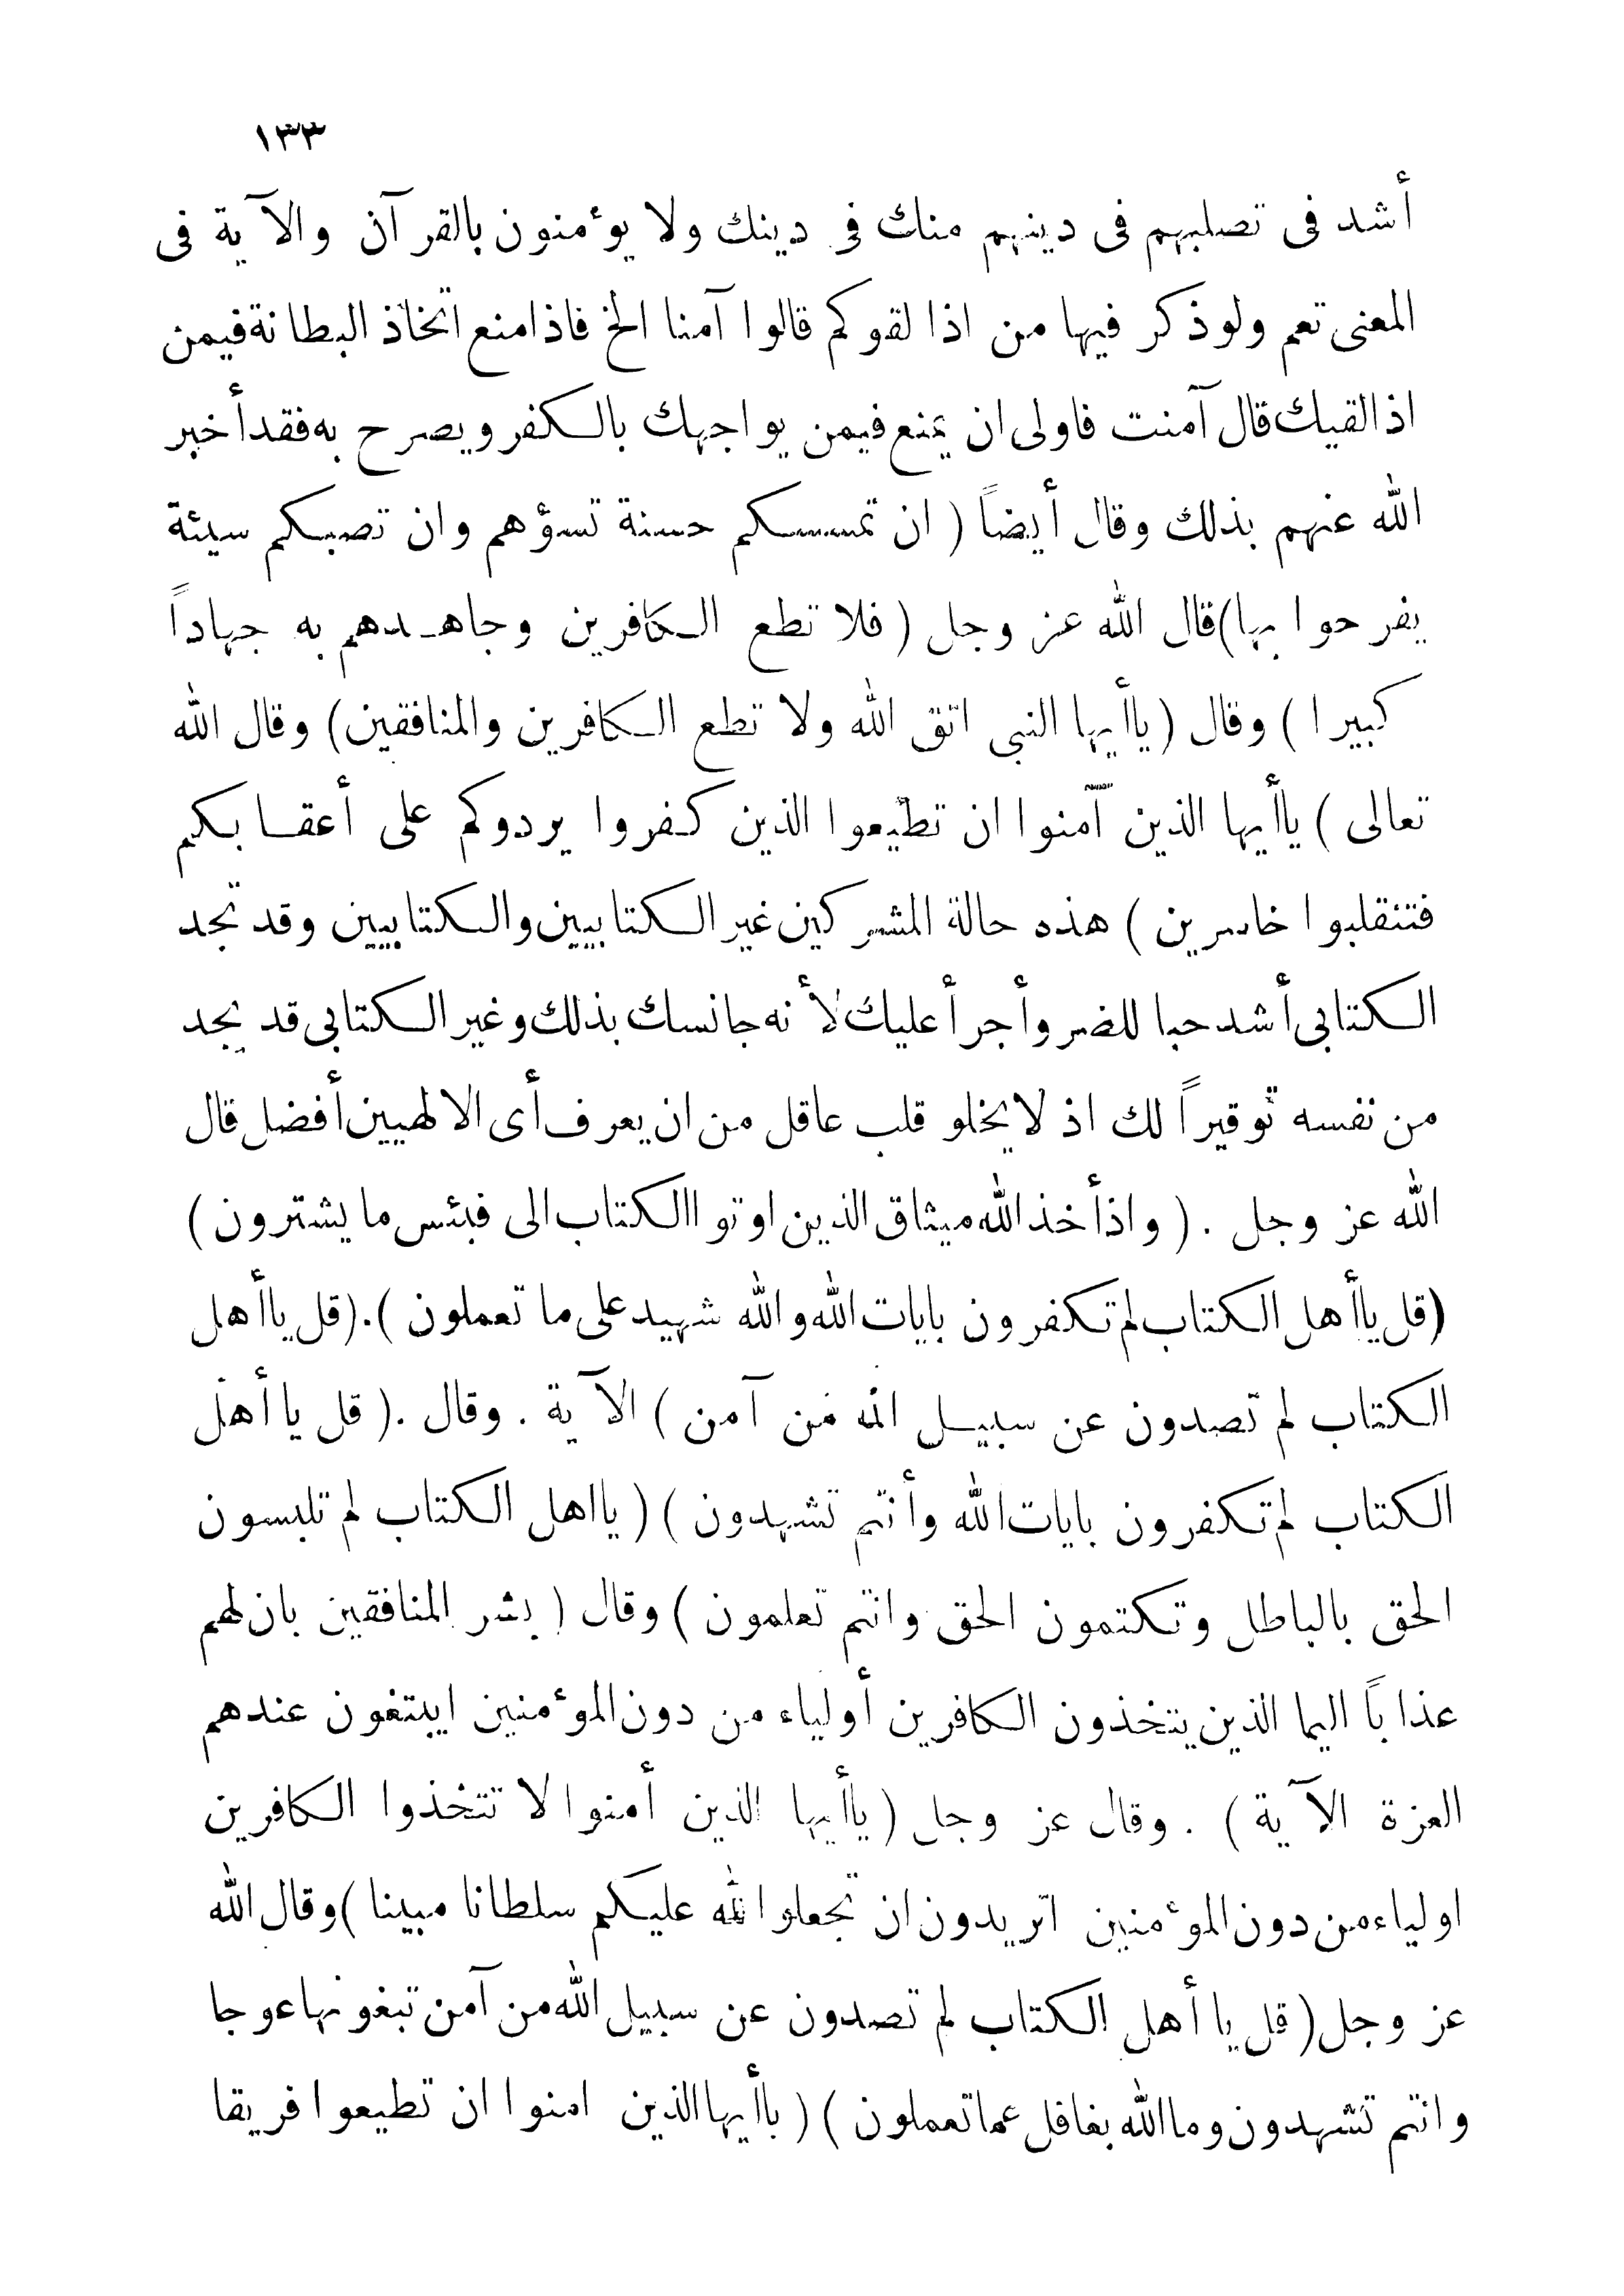 ١٣٣
أشد فى تصلبهم فى دينهم منك فى دينك ولا يؤمنون بالقرآن والآية فى
المعنى تعم ولوذكر فيها من اذا لقوكم قالوا آمنا الخ فاذا منع اتخاذ البطانة فيمن
اذا لقيك قال آمنت فاولى ان يمنع فيمن يواجهك بالكفر ويصرح به فقد أخبر
الله عنهم بذلك وقال أيضاً ( ان تمسسكم حسنة تسؤهم وان تصبكم سيئة
يفرحوا بها) قال الله عز وجل ( فلا تطع الكافرين وجاهدهم به جهاداً
كبيرا ) وقال ( ياأيها النبى اتق الله ولا تطع الكافرين والمنافقين) وقال الله
تعالى ) ياأيها الذين آمنوا ان تطيعوا الذين كفروا يردوكم على أعقابكم
فتنقلبوا خاسرين ) هذه حالة المشركين غير الكتابيين والكتابيين وقد تجد
الكتابى أشد حبا للضر وأجرأ عليك لأنه جانسك بذلك وغير الكتابى قد يجد
من نفسه توقيراً لك اذ لا يخلو قلب عاقل من ان يعرف أى الالهيين أفضل قال
الله عز وجل . ( واذ أخذ الله ميثاق الذين اوتوا الكتاب الى فبئس ما يشترون )
(قل ياأهل الكتاب لم تكفرون بايات الله والله شهيد على ما تعملون ). (قل ياأهل
الكتاب لم تصدون عن سبيل الله من آمن ) الآية . وقال . ( قل يا أهل
الكتاب لم تكفرون بايات الله وأنتم تشهدون ) ( يااهل الكتاب لم تلبسون
الحق بالباطل وتكتمون الحق وانتم تعلمون ) وقال ( بشر المنافقين بان لهم
عذاباً اليما الذين يتخذون الكافرين أولياء من دون المؤمنين ايبتغون عندهم
العزة الآية ) . وقال عز وجل ( ياأيها الذين أمنوا لا تتخذوا الكافرين
اولياء من دون المؤمنين اتريدون ان تجعلوا لله عليكم سلطانا مبينا ) وقال الله
عز وجل ( قل يا أهل الكتاب لم تصدون عن سبيل الله من آمن تبغونها عوجا
وانتم تشهدون وما الله بغافل عما تعملون ) ( ياأيها الذين امنوا ان تطيعوا فريقا